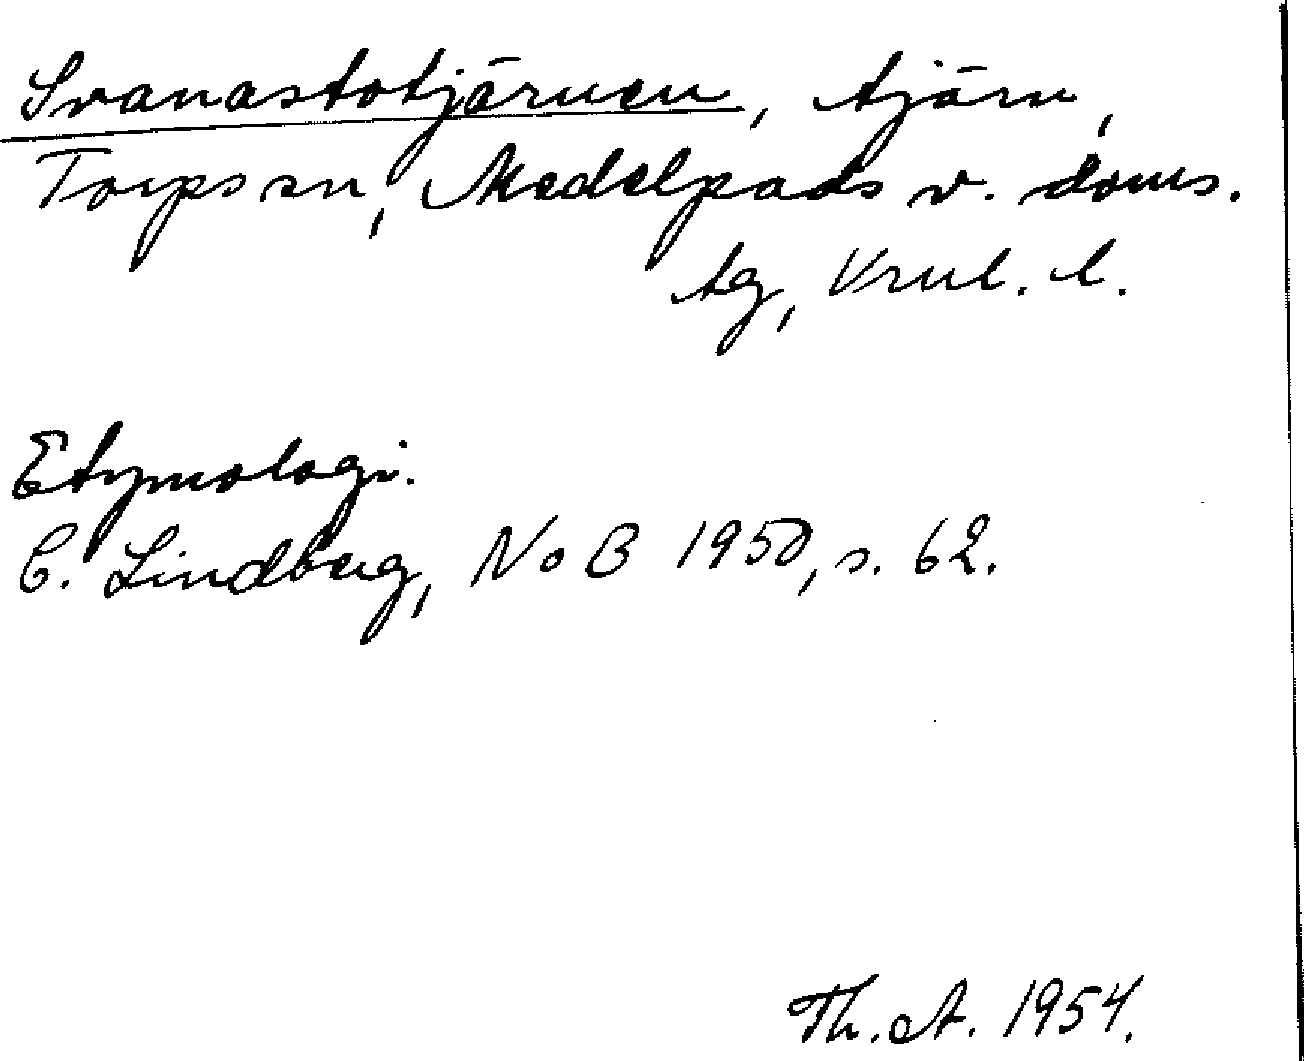 Svanastotjärnen, tjärn,
Torps sn, Medelpads v. doms.
tg, Vrnl. l.
Etymologi.
C. Lindberg, NoB 1950, s. 62.
Th. A. 1954.